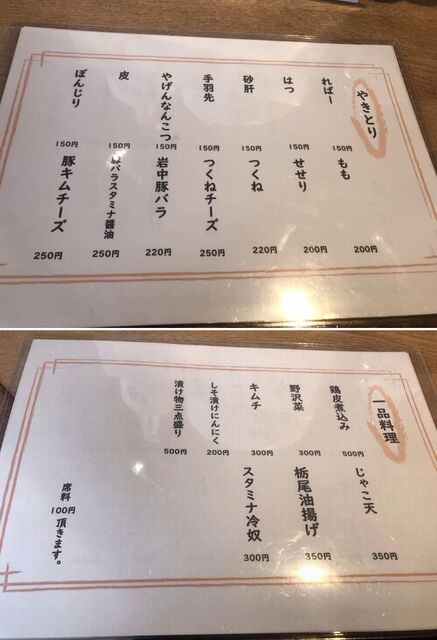 やきとり
ればー 150円
はつ 150円
砂肝 150円
手羽先 150円
やげんなんこつ 150円
皮 150円
ぼんじり 150円
もも 200円
せせり 200円
つくね 220円
つくねチーズ 250円
岩中豚バラ 220円
豚バラスタミナ醤油 250円
豚キムチーズ 250円
一品料理
鶏皮煮込み 500円
野沢菜 300円
キムチ 300円
しそ漬けにんにく 200円
漬け物三点盛り 500円
じゃこ天 350円
栃尾油揚げ 350円
スタミナ冷奴 300円
席料100円頂きます。